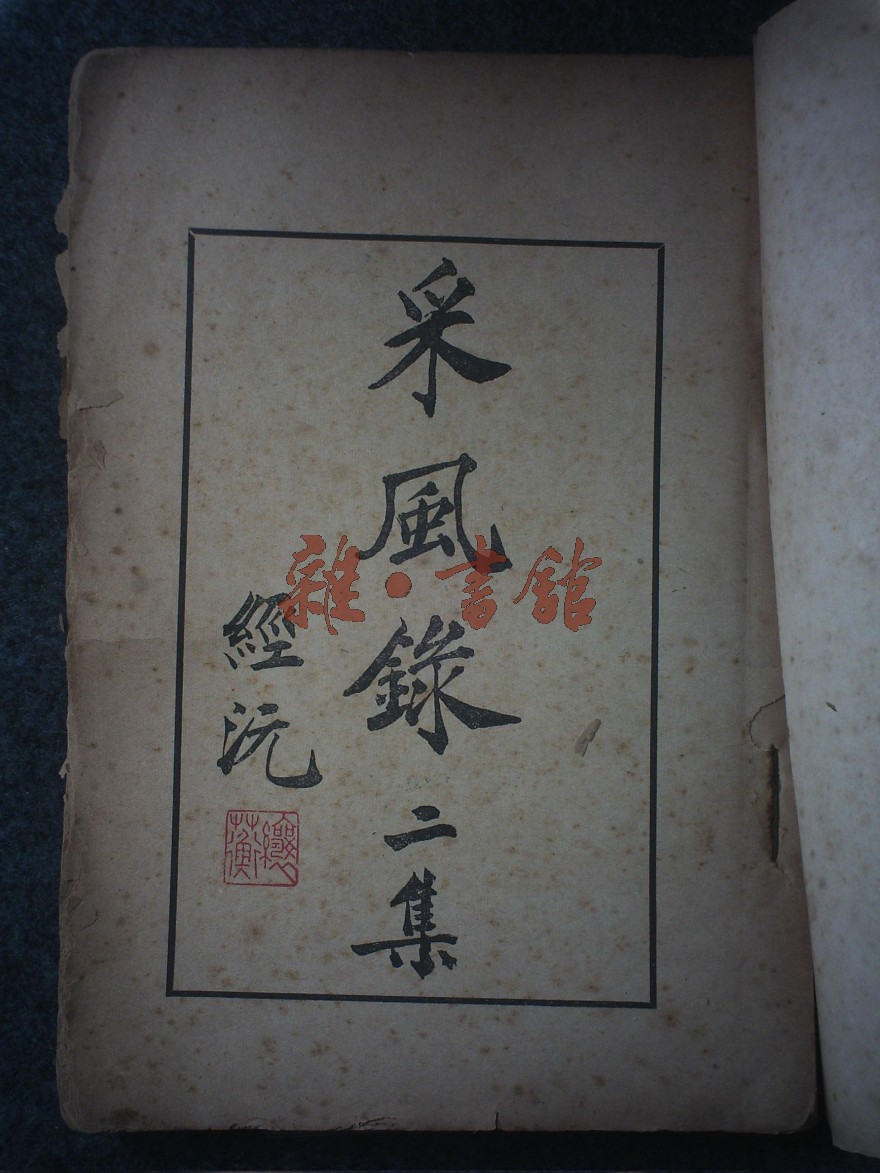 采風錄二集
經沅
纕蘅
雜·書館